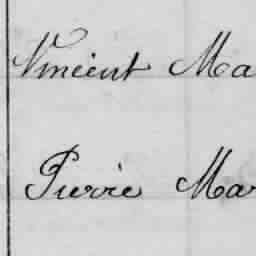 Vincent Ma
Pierre Mar